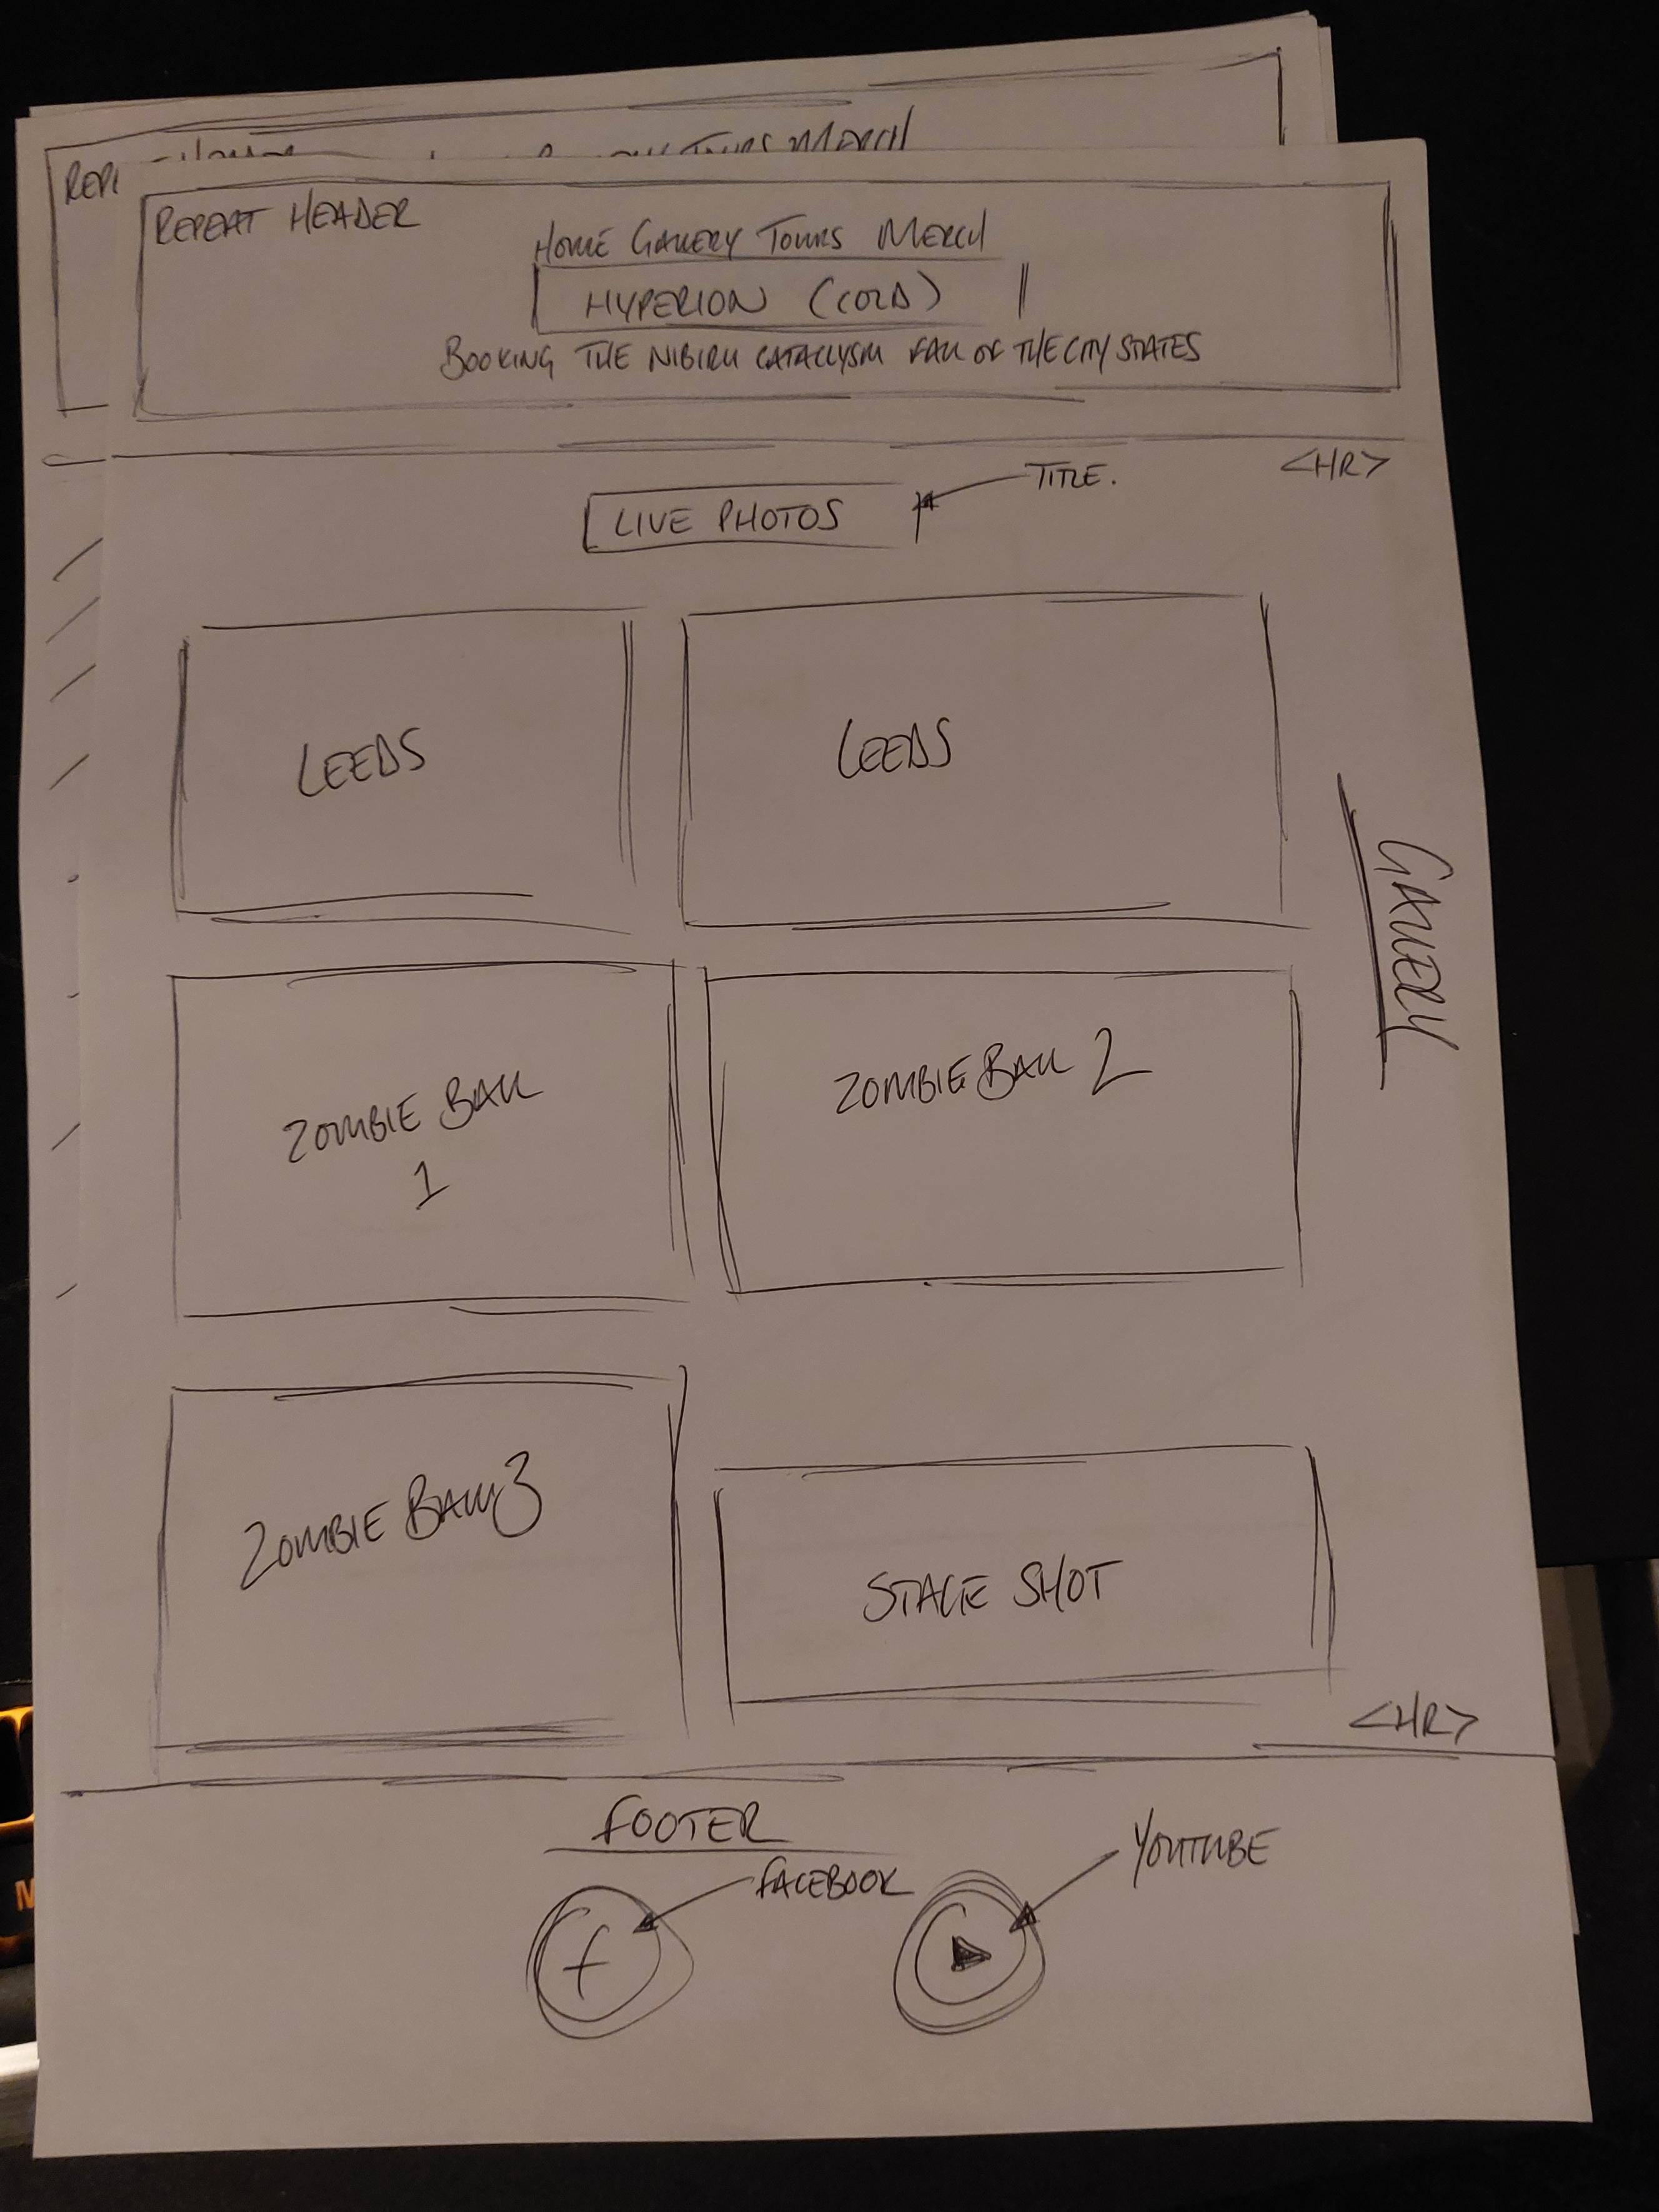 Home Tours Merch
REPEAT HEADER
Home Gallery Tours Merch
HYPERION (COLD)
BOOKING THE NIBIRU CATACLYSM FALL OF THE CITY STATES
<HR>
TITLE.
LIVE PHOTOS
LEEDS
LEEDS
GALLERY
ZOMBIE BALL
1
ZOMBIE BALL 2
ZOMBIE BALL 3
STAGE SHOT
<HR>
FOOTER
FACEBOOK
YOUTUBE
f